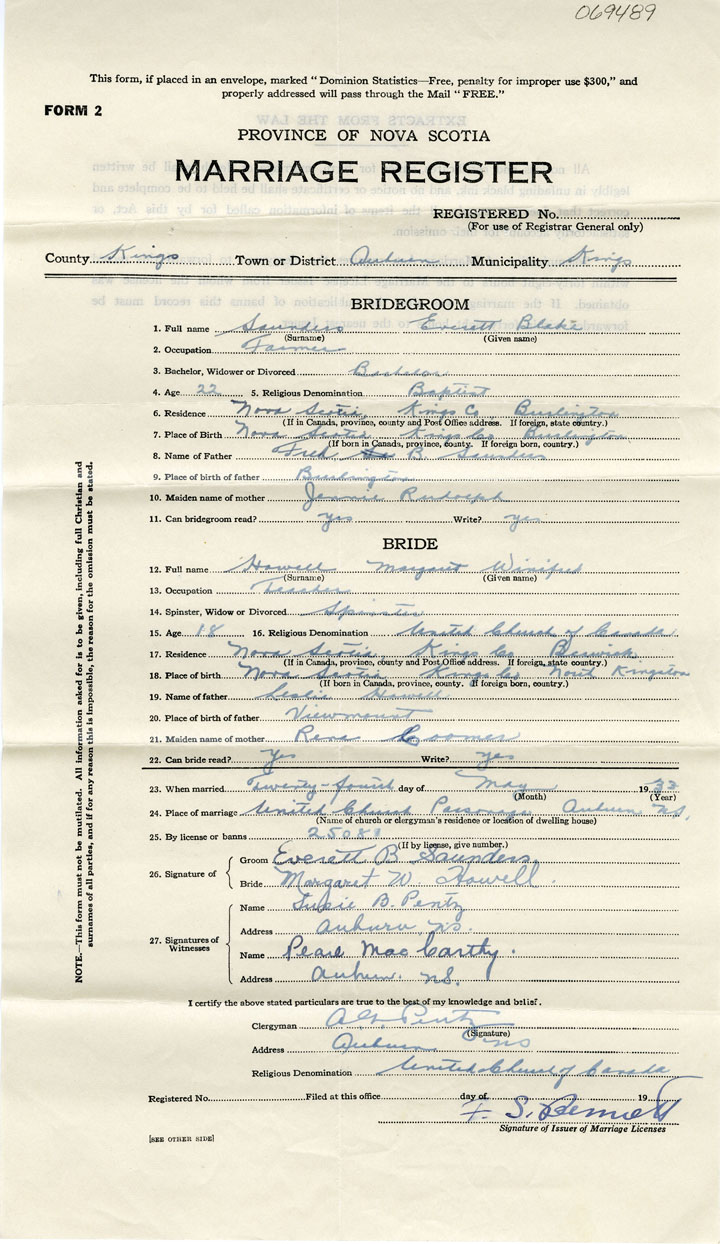 069489
This form, if placed in an envelope, marked "Dominion Statistics—Free, penalty for improper use $300," and
properly addressed will pass through the Mail "FREE."
FORM 2
PROVINCE OF NOVA SCOTIA
MARRIAGE REGISTER
REGISTERED No.
(For use of Registrar General only)
County Kings Town or District Auburn Municipality Kings
BRIDEGROOM
1. Full name Saunders Everett Blake
(Surname) (Given name)
2. Occupation Farmer
3. Bachelor, Widower or Divorced Bachelor
4. Age 22 5. Religious Denomination Baptist
6. Residence Nova Scotia Kings Co Burlington
(If in Canada, province, county and Post Office address. If foreign, state country.)
7. Place of Birth Nova Scotia Kings Co Burlington
(If born in Canada, province, county. If foreign born, country.)
8. Name of Father Fred B. Saunders
9. Place of birth of father Burlington
10. Maiden name of mother Jennie Rudolph
11. Can bridegroom read? yes Write? yes
BRIDE
12. Full name Howell Margaret Winifred
(Surname) (Given name)
13. Occupation Teacher
14. Spinster, Widow or Divorced Spinster
15. Age 18 16. Religious Denomination United Church of Canada
17. Residence Nova Scotia Kings Co Berwick
(If in Canada, province, county and Post Office address. If foreign, state country.)
18. Place of birth Nova Scotia Kings Co North Kingston
(If born in Canada, province, county. If foreign born, country.)
19. Name of father Leslie Howell
20. Place of birth of father Viewmount
21. Maiden name of mother Rena Coomer
22. Can bride read? Yes Write? yes
23. When married Twenty-fourth day of May 19
(Month) (Year)
24. Place of marriage United Church Parsonage Auburn N.S.
(Name of church or clergyman's residence or location of dwelling house)
25. By license or banns 25081
(If by license, give number.)
26. Signature of
Groom Everett B. Saunders
Bride Margaret W. Howell.
27. Signatures of Witnesses
Name Susie B. Pentz
Address Auburn N.S.
Name Pearl MacCarthy.
Address Auburn. N.S.
I certify the above stated particulars are true to the best of my knowledge and belief.
Clergyman Pentz
(Signature)
Address Auburn NS
Religious Denomination United Church of Canada
Registered No. Filed at this office day of 19
F. S. Bennett
Signature of Issuer of Marriage Licenses
[SEE OTHER SIDE]
NOTE.—This form must not be mutilated. All information asked for is to be given, including full Christian and
surnames of all parties, and if for any reason this is impossible, the reason for the omission must be stated.